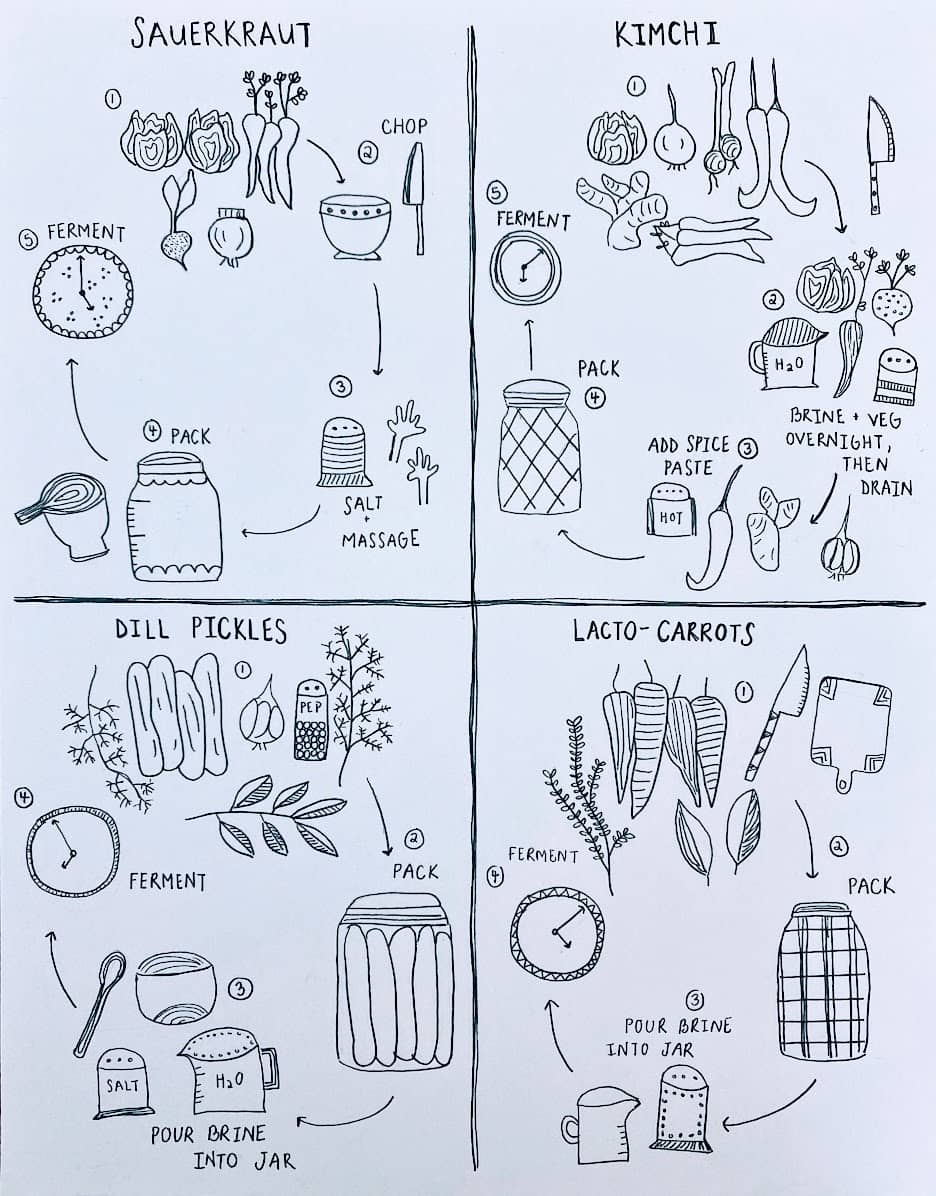 SAUERKRAUT
①
② CHOP
③
SALT
+
MASSAGE
④ PACK
⑤ FERMENT
KIMCHI
①
②
H2O
BRINE + VEG
OVERNIGHT,
THEN
DRAIN
ADD SPICE ③
PASTE
HOT
PACK
④
⑤
FERMENT
DILL PICKLES
①
PEP
②
PACK
③
SALT
H2O
POUR BRINE
INTO JAR
④
FERMENT
LACTO-CARROTS
①
②
PACK
③
POUR BRINE
INTO JAR
FERMENT
④